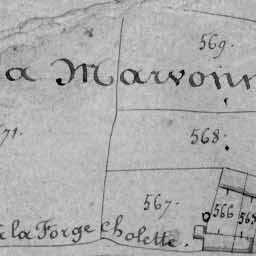 569.
a Marvonn
568.
71.
567.
566
à la Forge Cholette.